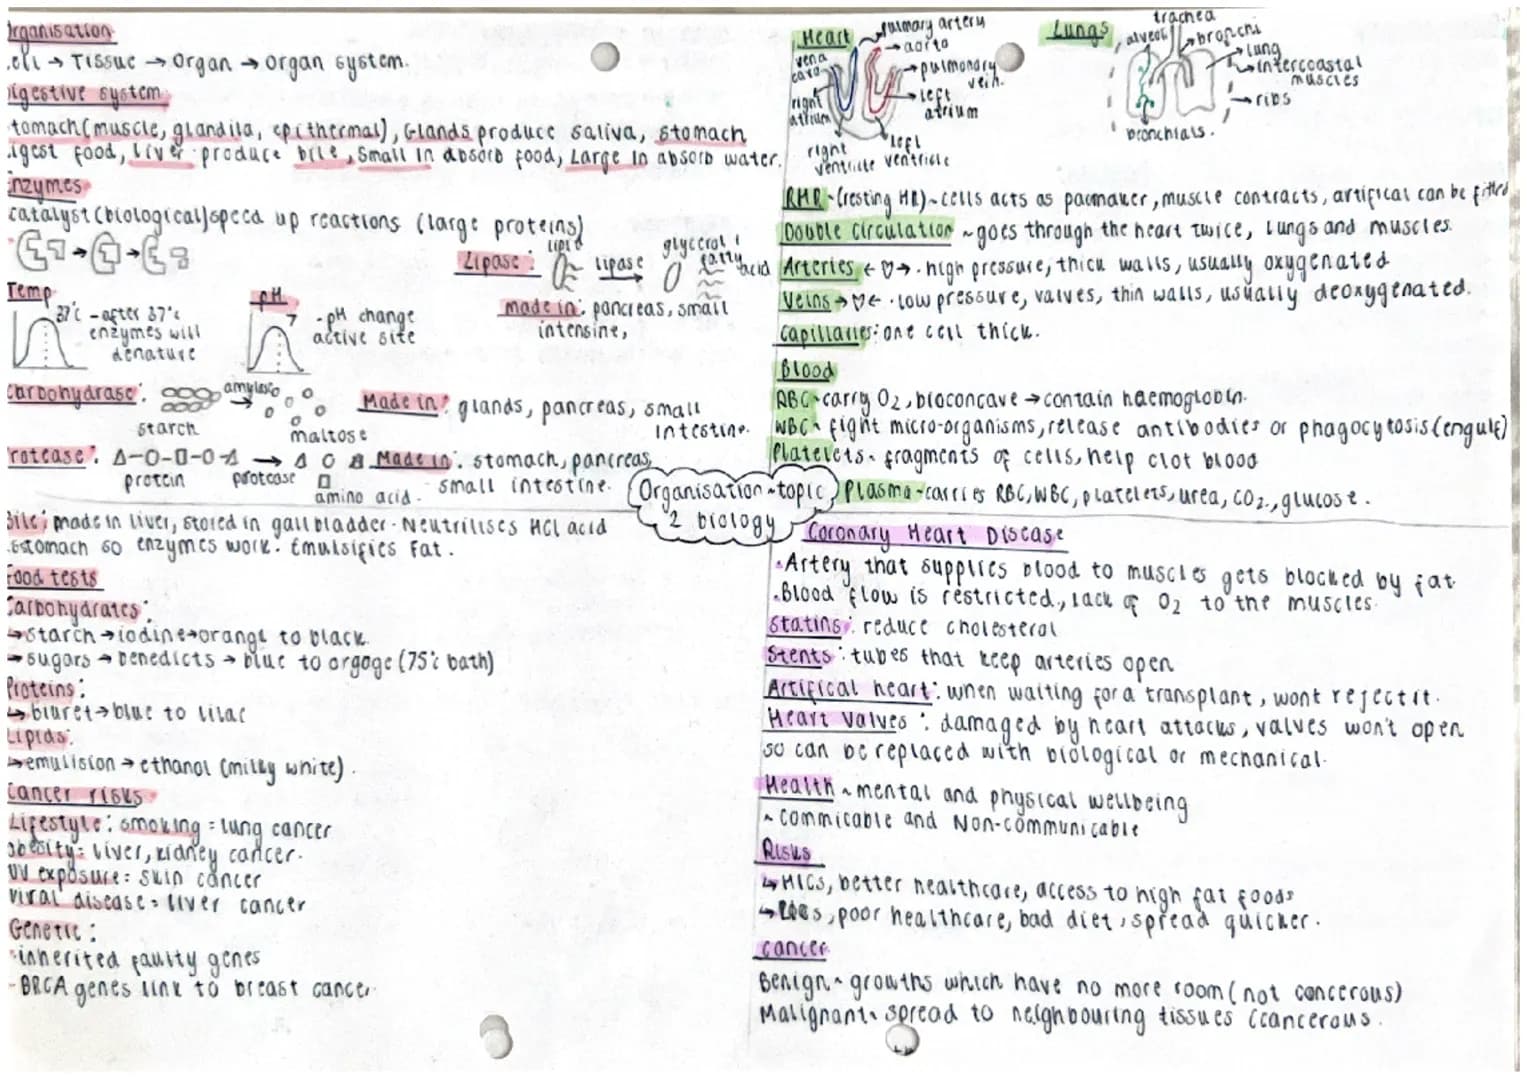 rganisation
ell → Tissue → Organ → Organ system.
igestive system
tomach (muscle, glandila, epithermal), Glands produce saliva, stomach
igest food, liver produce bile, Small in absorb food, Large in absorb water.
Enzymes
catalyst (biological) speed up reactions (large proteins)
Lipase: lipid lipase glycerol + fatty acid
made in: pancreas, small
intensine,
Temp
37°c - after 37°c
enzymes will
denature
pH
7 - pH change
active site
Carbohydrase: amylase
starch maltose
Made in: glands, pancreas, small
intestine.
rotease:
protein protease amino acid.
Made in: stomach, pancreas,
small intestine.
Organisation ~ topic
2 biology
Bile; made in liver, stored in gall bladder. Neutrilises HCl acid
stomach so enzymes work. Emulsifies Fat.
Food tests
Carbohydrates:
→ starch → iodine → orange to black
→ sugars → benedicts → blue to orgage (75°c bath)
Proteins:
↳ biuret → blue to lilac
Lipids:
↳ emulision → ethanol (milky white).
Cancer risks
Lifestyle: smoking = lung cancer
obesity = liver, kidney cancer.
UV exposure = skin cancer
viral disease = liver cancer
Genetic:
- inherited faulty genes
- BRCA genes link to breast cancer
Heart
pulmary artery
aorta
vena
cava
pulmonary
vein.
left
atrium
right
atrium
right
ventricle
left
ventricle
Lungs
trachea
alveoli
bronchi
lung
intercoastal
muscles
ribs
bronchials.
RHR ~ (resting HR) ~ cells acts as pacmaker, muscle contracts, artifical can be fitted
Double circulation ~ goes through the heart twice, lungs and muscles.
Arteries ← ♡ → . high pressure, thick walls, usually oxygenated
Veins → ♡ ← . low pressure, valves, thin walls, usually deoxygenated.
Capillaries: one cell thick.
Blood
RBC ~ carry O2, bioconcave → contain haemoglobin.
WBC ~ fight micro-organisms, release antibodies or phagocytosis (engulf)
Platelets ~ fragments of cells, help clot blood
Plasma - carries RBC, WBC, platelets, urea, CO2, glucose.
Coronary Heart Disease
. Artery that supplies blood to muscles gets blocked by fat
. Blood flow is restricted, lack of O2 to the muscles.
Statins: reduce cholesterol
Stents: tubes that keep arteries open
Artifical heart: when waiting for a transplant, wont reject it.
Heart Valves: damaged by heart attacks, valves won't open
so can be replaced with biological or mechanical.
Health ~ mental and physical wellbeing
~ Commicable and Non-communicable
Risks
↳ HICs, better healthcare, access to high fat foods
↳ , poor healthcare, bad diet, spread quicker.
cancer
Benign ~ growths which have no more room (not cancerous)
Malignant ~ spread to neighbouring tissues (cancerous.